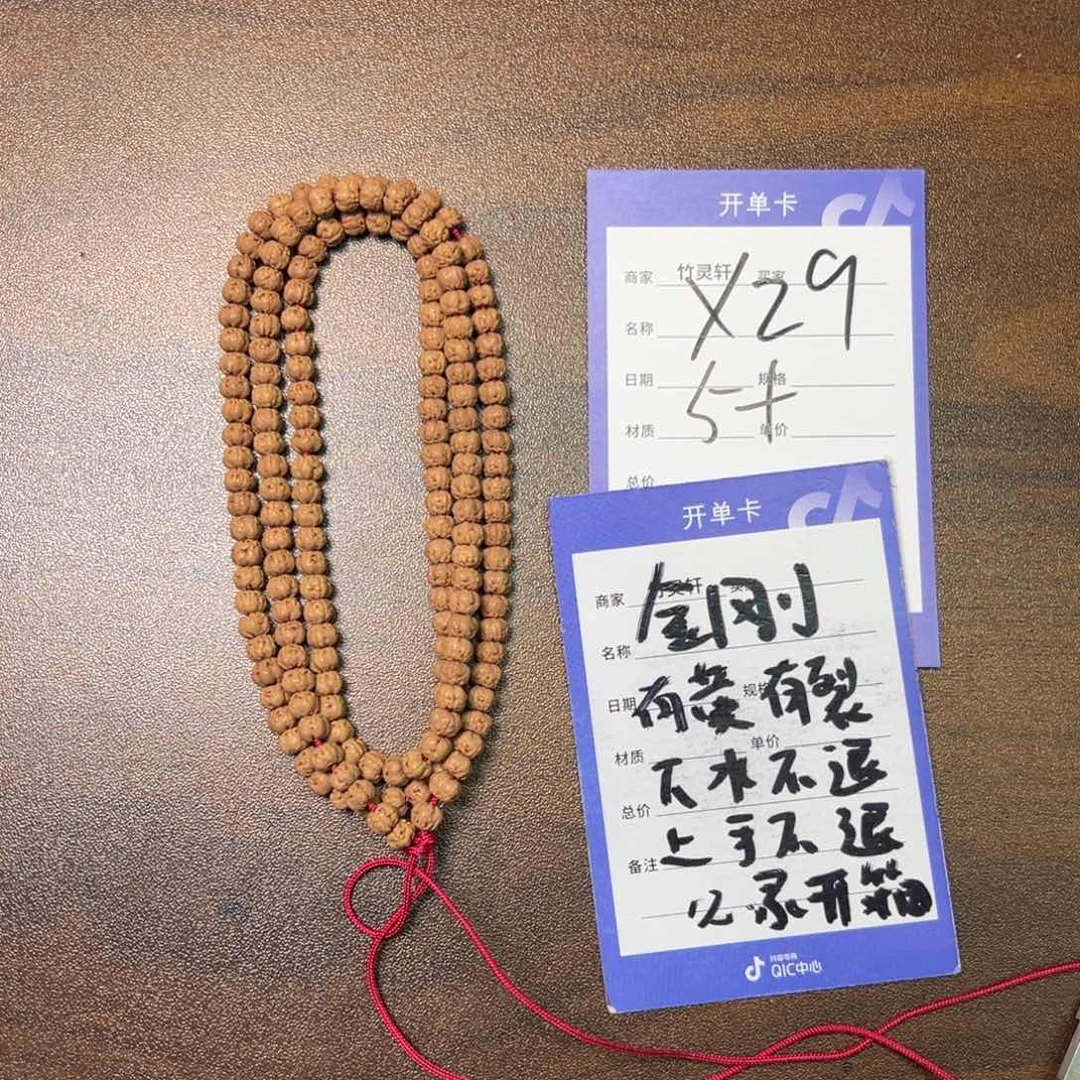 开单卡
商家 竹灵轩 买家
X29
名称
日期 规格
5+
材质 单价
总价
开单卡
商家 竹灵轩
金刚
名称
日期 规格
有黄有裂
材质 单价
下水不退
总价
上手不退
备注
必录开箱
抖音电商
QIC中心